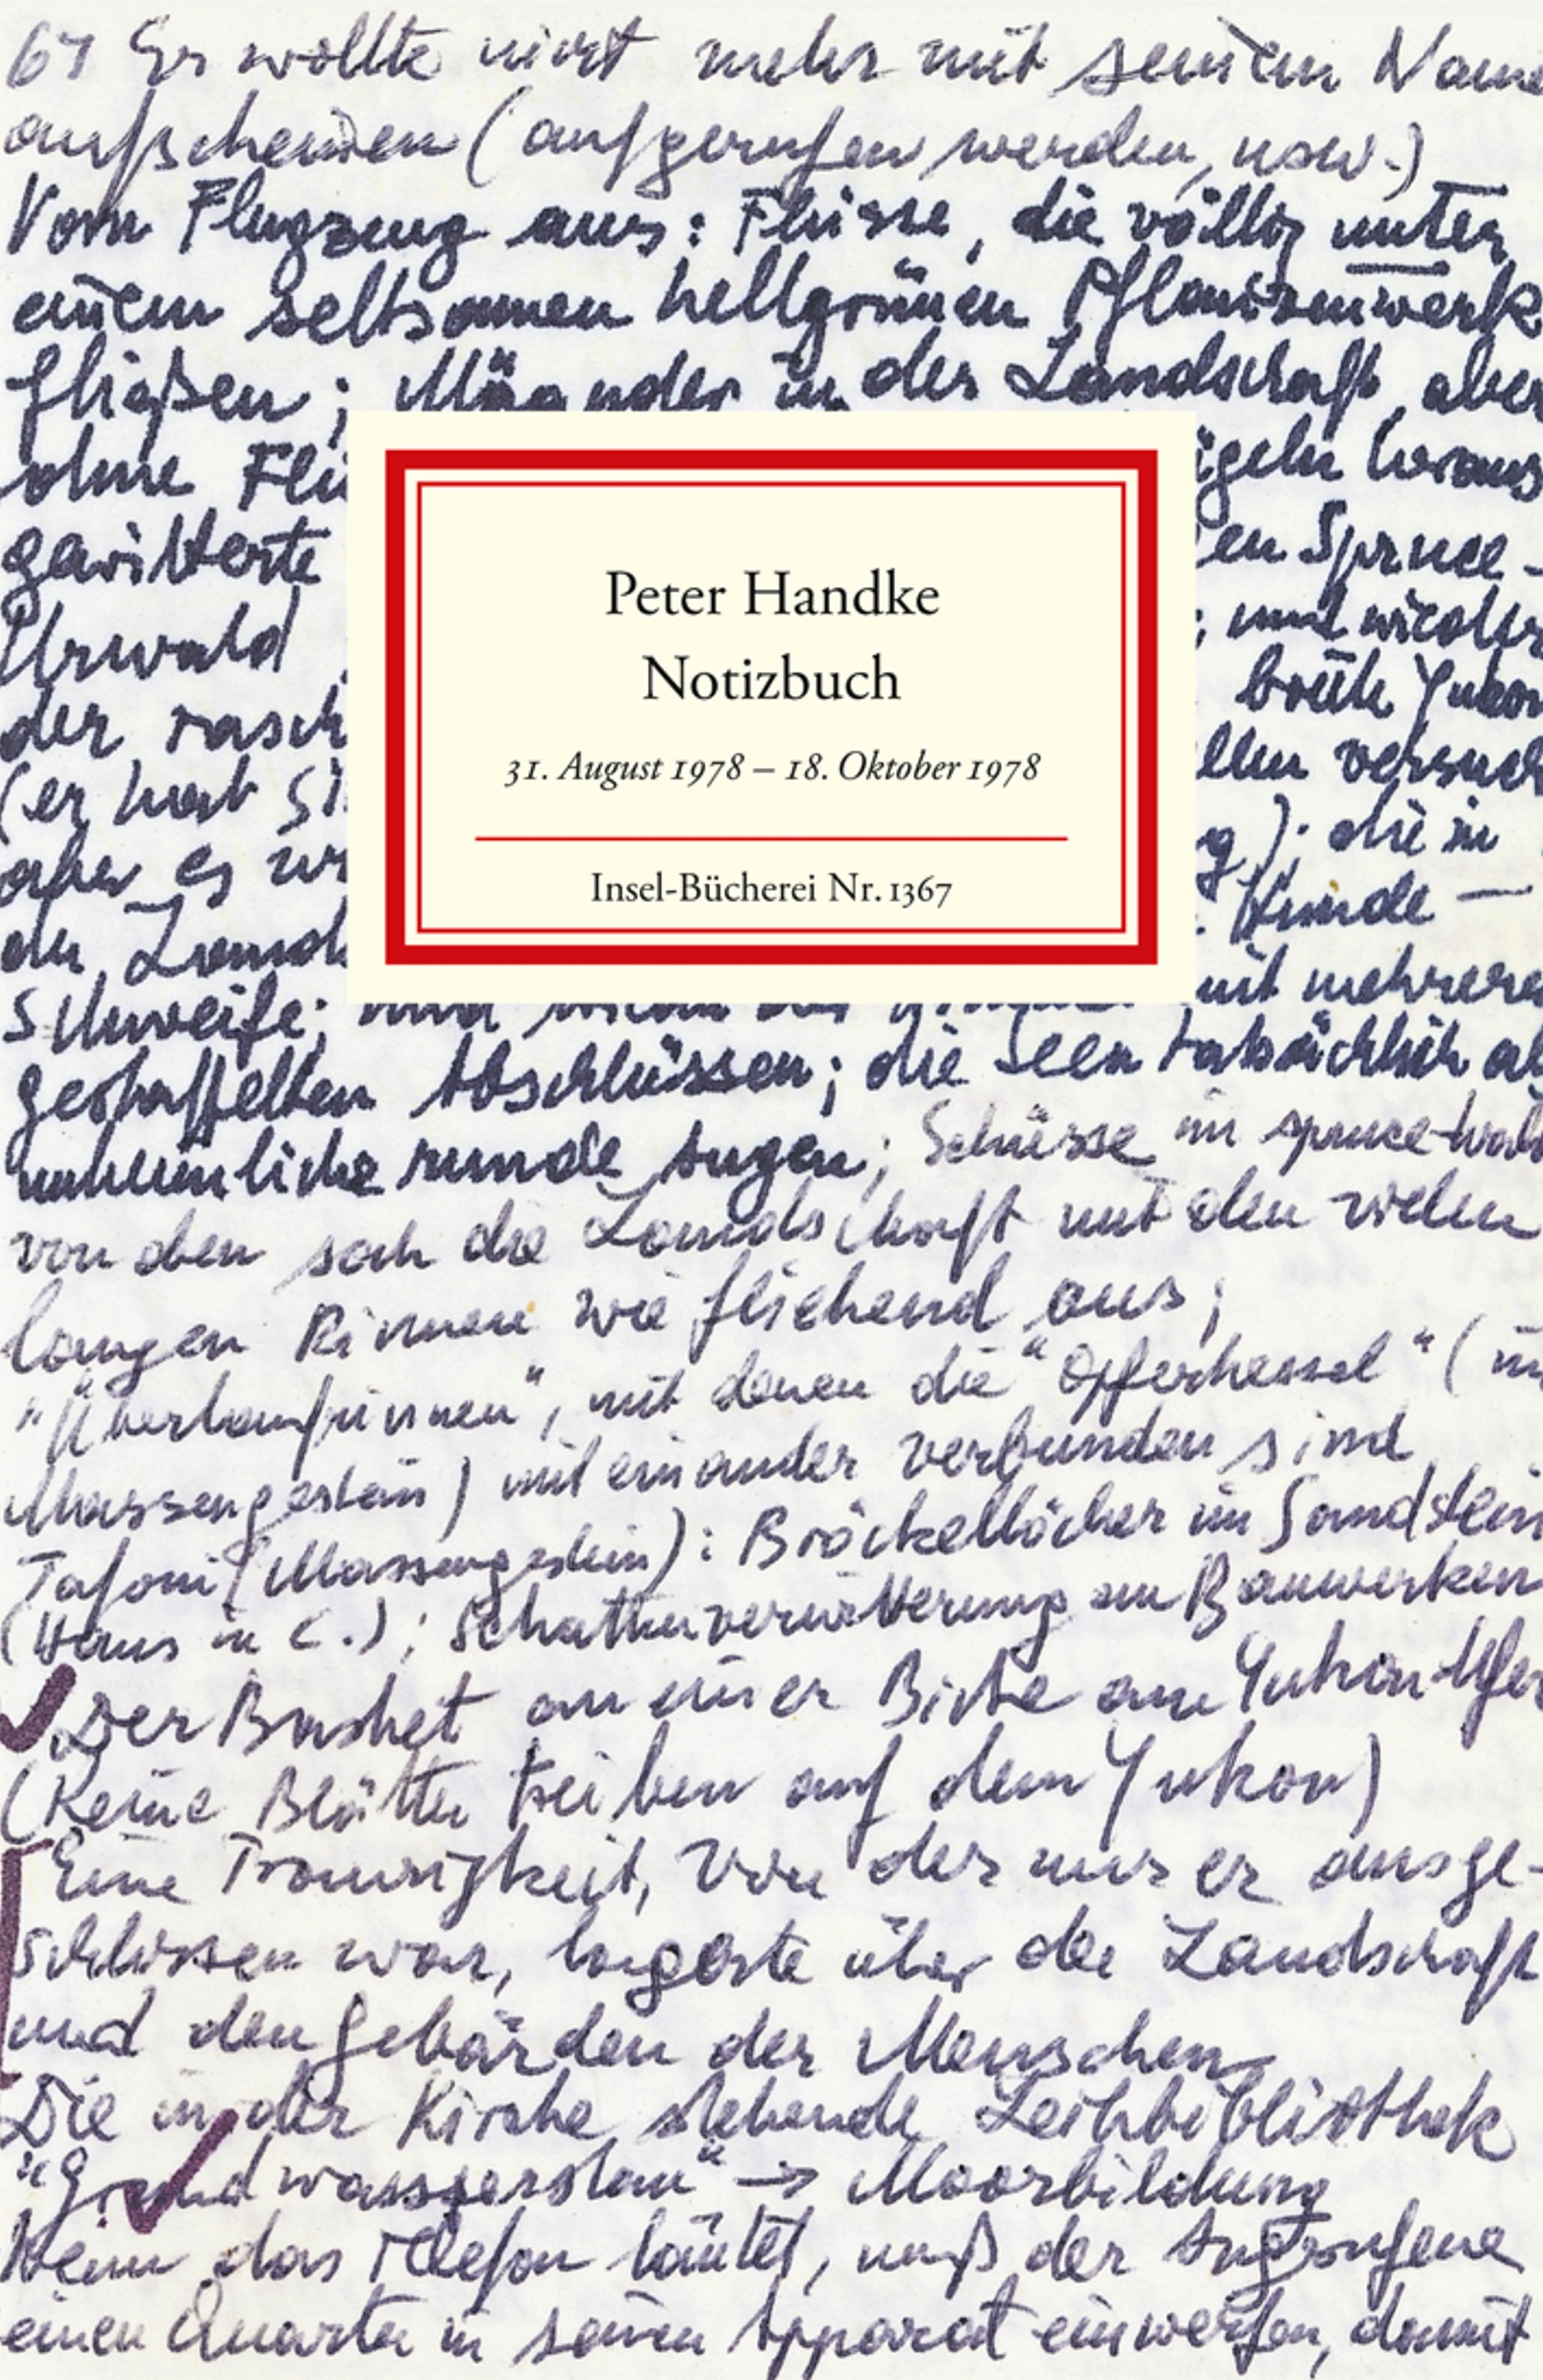 67 Er wollte nicht mehr mit seinem Name
aufscheinen (aufgerufen werden, usw.)
Vom Flugzeug aus: Flüsse, die völlig unter
einem seltsamen hellgrünen Pflanzenwerk
fließen; Mäander in der Landschaft, aber
ohne Flü
geln heraus
gewitterte
en Spruce-
Urwald
; und wieder
der rasch
breite Yukon
(er hat si
llen versuch
aber es
g); die in
den Land
Hunde —
Schweife; und mit mehreren
gestaffelten Abschlüssen; die Seen tatsächlich al
unheimliche runde Augen; Schüsse im spruce-Wal
von oben sah die Landschaft mit den vielen
langen Rinnen wie fliehend aus;
"Überlaufrinnen", mit denen die "Opferkessel" (im
Massengestein) miteinander verbunden sind
Tafoni (Massengestein): Bröckellöcher im Sandstein
(Haus in C.); Schattenverwitterung an Bauwerken
Der Basket an einer Birke am Yukon-Ufer
(Keine Blätter treiben auf dem Yukon)
Eine Traurigkeit, von der nur er ausge-
schlossen war, lagerte über der Landschaft
und den Gebärden der Menschen
Die in der Kirche stehende Leihbibliothek
"Grundwasserstau" → Moorbildung
Wenn das Telefon läutet, muß der Angerufene
einen Quarter in seinen Apparat einwerfen, damit
Peter Handke
Notizbuch
31. August 1978 – 18. Oktober 1978
Insel-Bücherei Nr. 1367